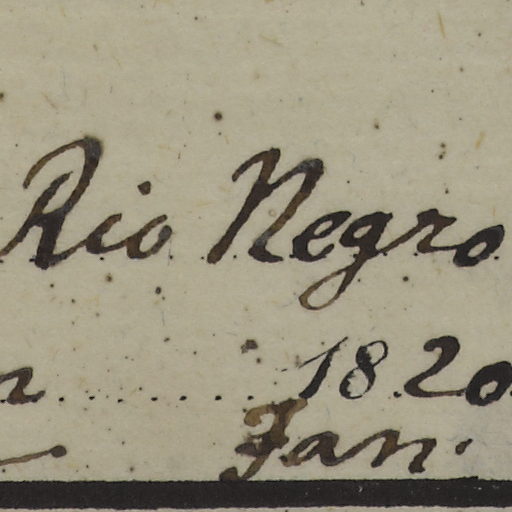 Rio Negro
1820
Jan.